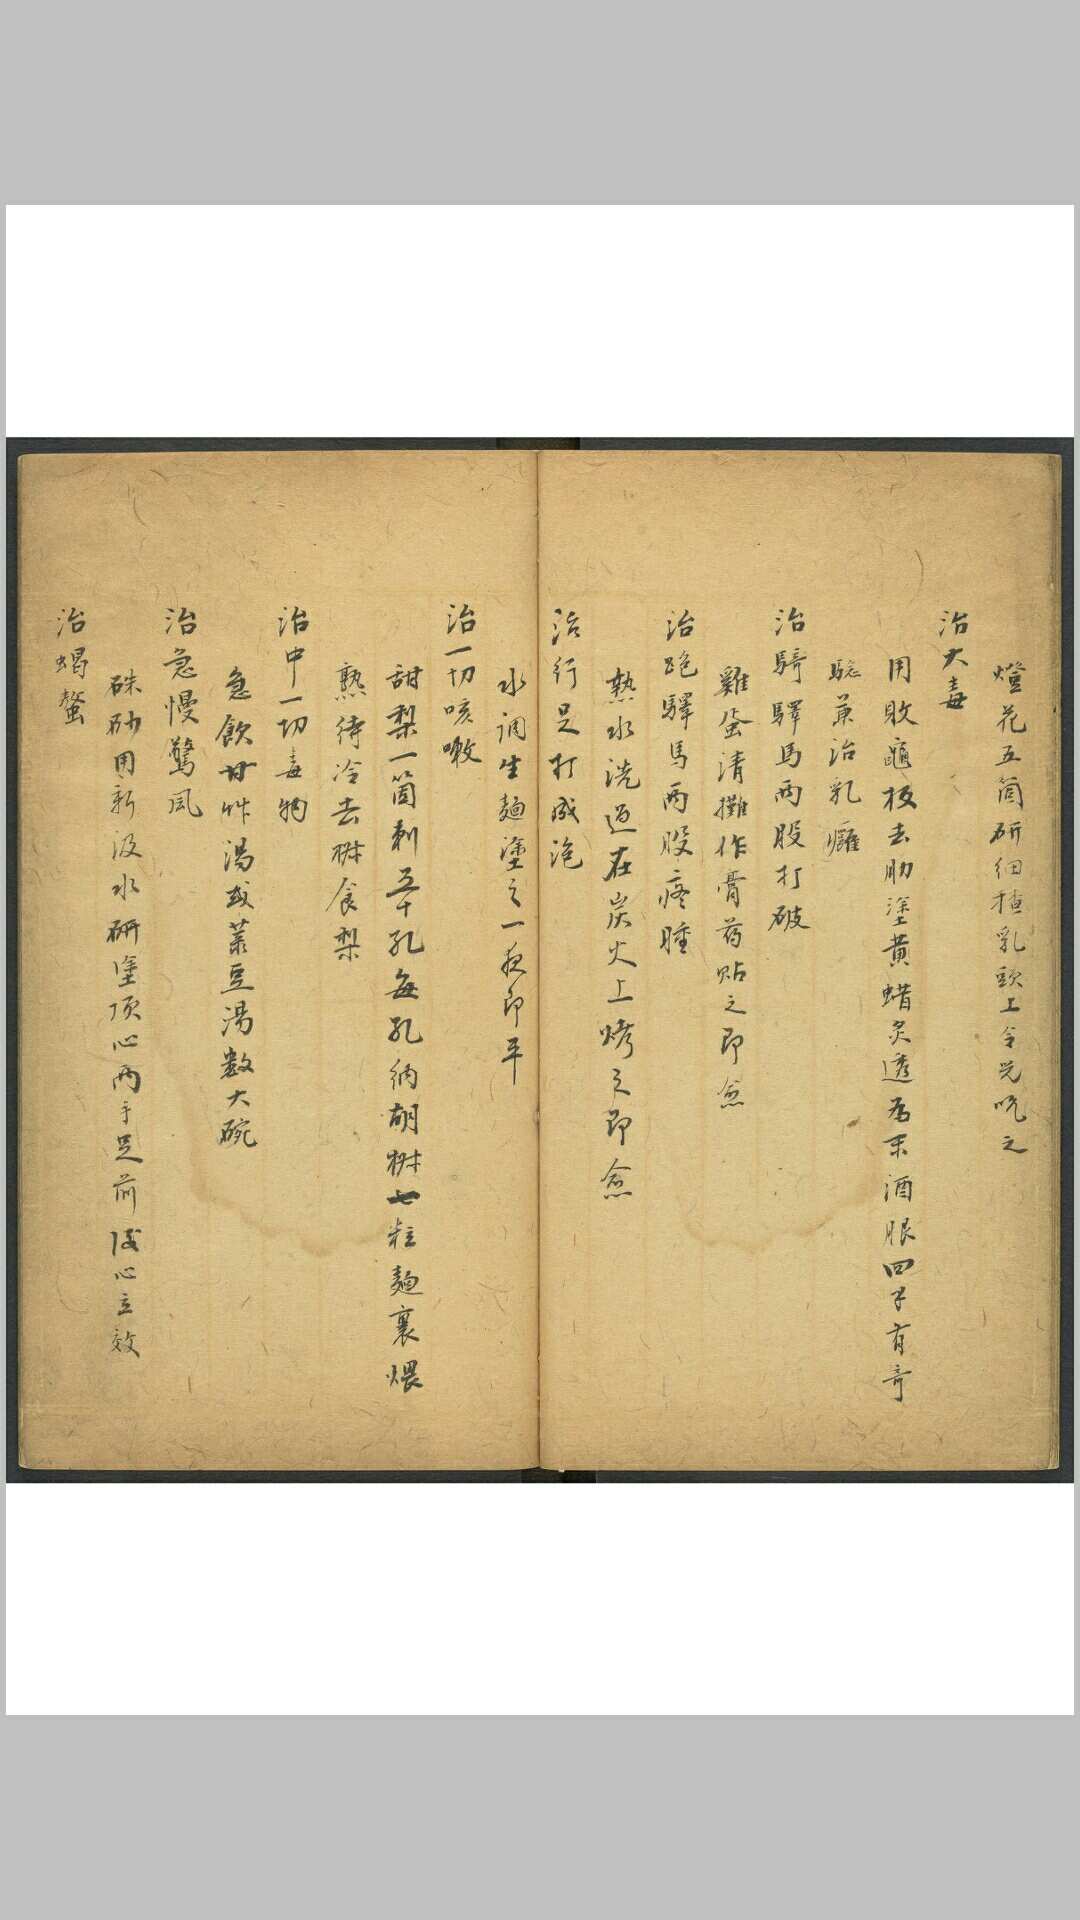 燈花五箇研細揸乳頭上令兒吮之
治大毒
用敗龜板去肋塗黃蜡炙透為末酒服四子有奇
驗兼治乳癰
治騎驛馬兩股打破
雞蛋清攤作膏药貼之即愈
治跑驛馬兩股疼腫
熱水洗过在炭火上烤之即愈
治行足打成泡
水調生麵塗之一夜即平
治一切咳嗽
甜梨一箇刺五十孔每孔納胡椒七粒麵裹煨
熟待冷去椒食梨
治中一切毒物
急飲甘艸湯或菉豆湯數大碗
治急慢驚風
硃砂用新汲水研塗頂心兩手足前後心立效
治蝎螫